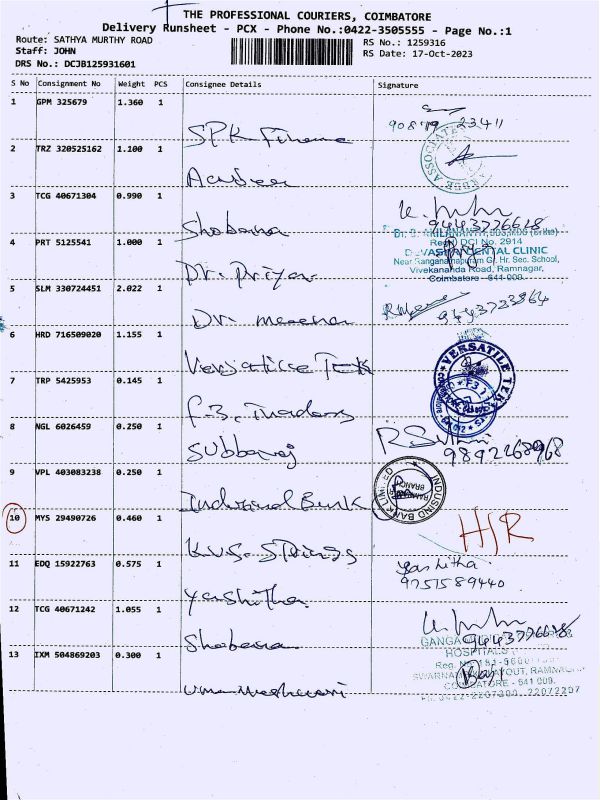 THE PROFESSIONAL COURIERS, COIMBATORE
Delivery Runsheet - PCX - Phone No.:0422-3505555 - Page No.:1
Route: SATHYA MURTHY ROAD
RS No.: 1259316
Staff: JOHN
RS Date: 17-Oct-2023
DRS No.: DCJB125931601
S No Consignment No Weight PCS Consignee Details Signature
1 GPM 325679 1.360 1
SPK Finance
2 TRZ 320525162 1.100 1
3 TCG 40671304 0.990 1
Shobana
9443776618
4 PRT 5125541 1.000 1
Reg. DCI No. 2914
DENTAL CLINIC
Hr. Sec. School,
Vivekananda Road, Ramnagar,
Coimbatore - 641 009.
Dr. Priya
5 SLM 330724451 2.022 1
Dr. Meena
6 HRD 716509020 1.155 1
VERSATILE
Versatile
7 TRP 5425953 0.145 1
F3
F-3, Traders
8 NGL 6026459 0.250 1
Subbaraj
9892268968
9 VPL 403083238 0.250 1
INDUSIND BANK LIMITED
RAMNAGAR BRANCH
Indusind Bank
10 MYS 29490726 0.460 1
H/R
K.V.S. Strings
11 EDQ 15922763 0.575 1
Yashitha
9751589440
Yashitha
12 TCG 40671242 1.055 1
Shobana
9443776618
13 IXM 504869203 0.300 1
GANGA
HOSPITAL
COIMBATORE - 641 009.
Uma Maheswari